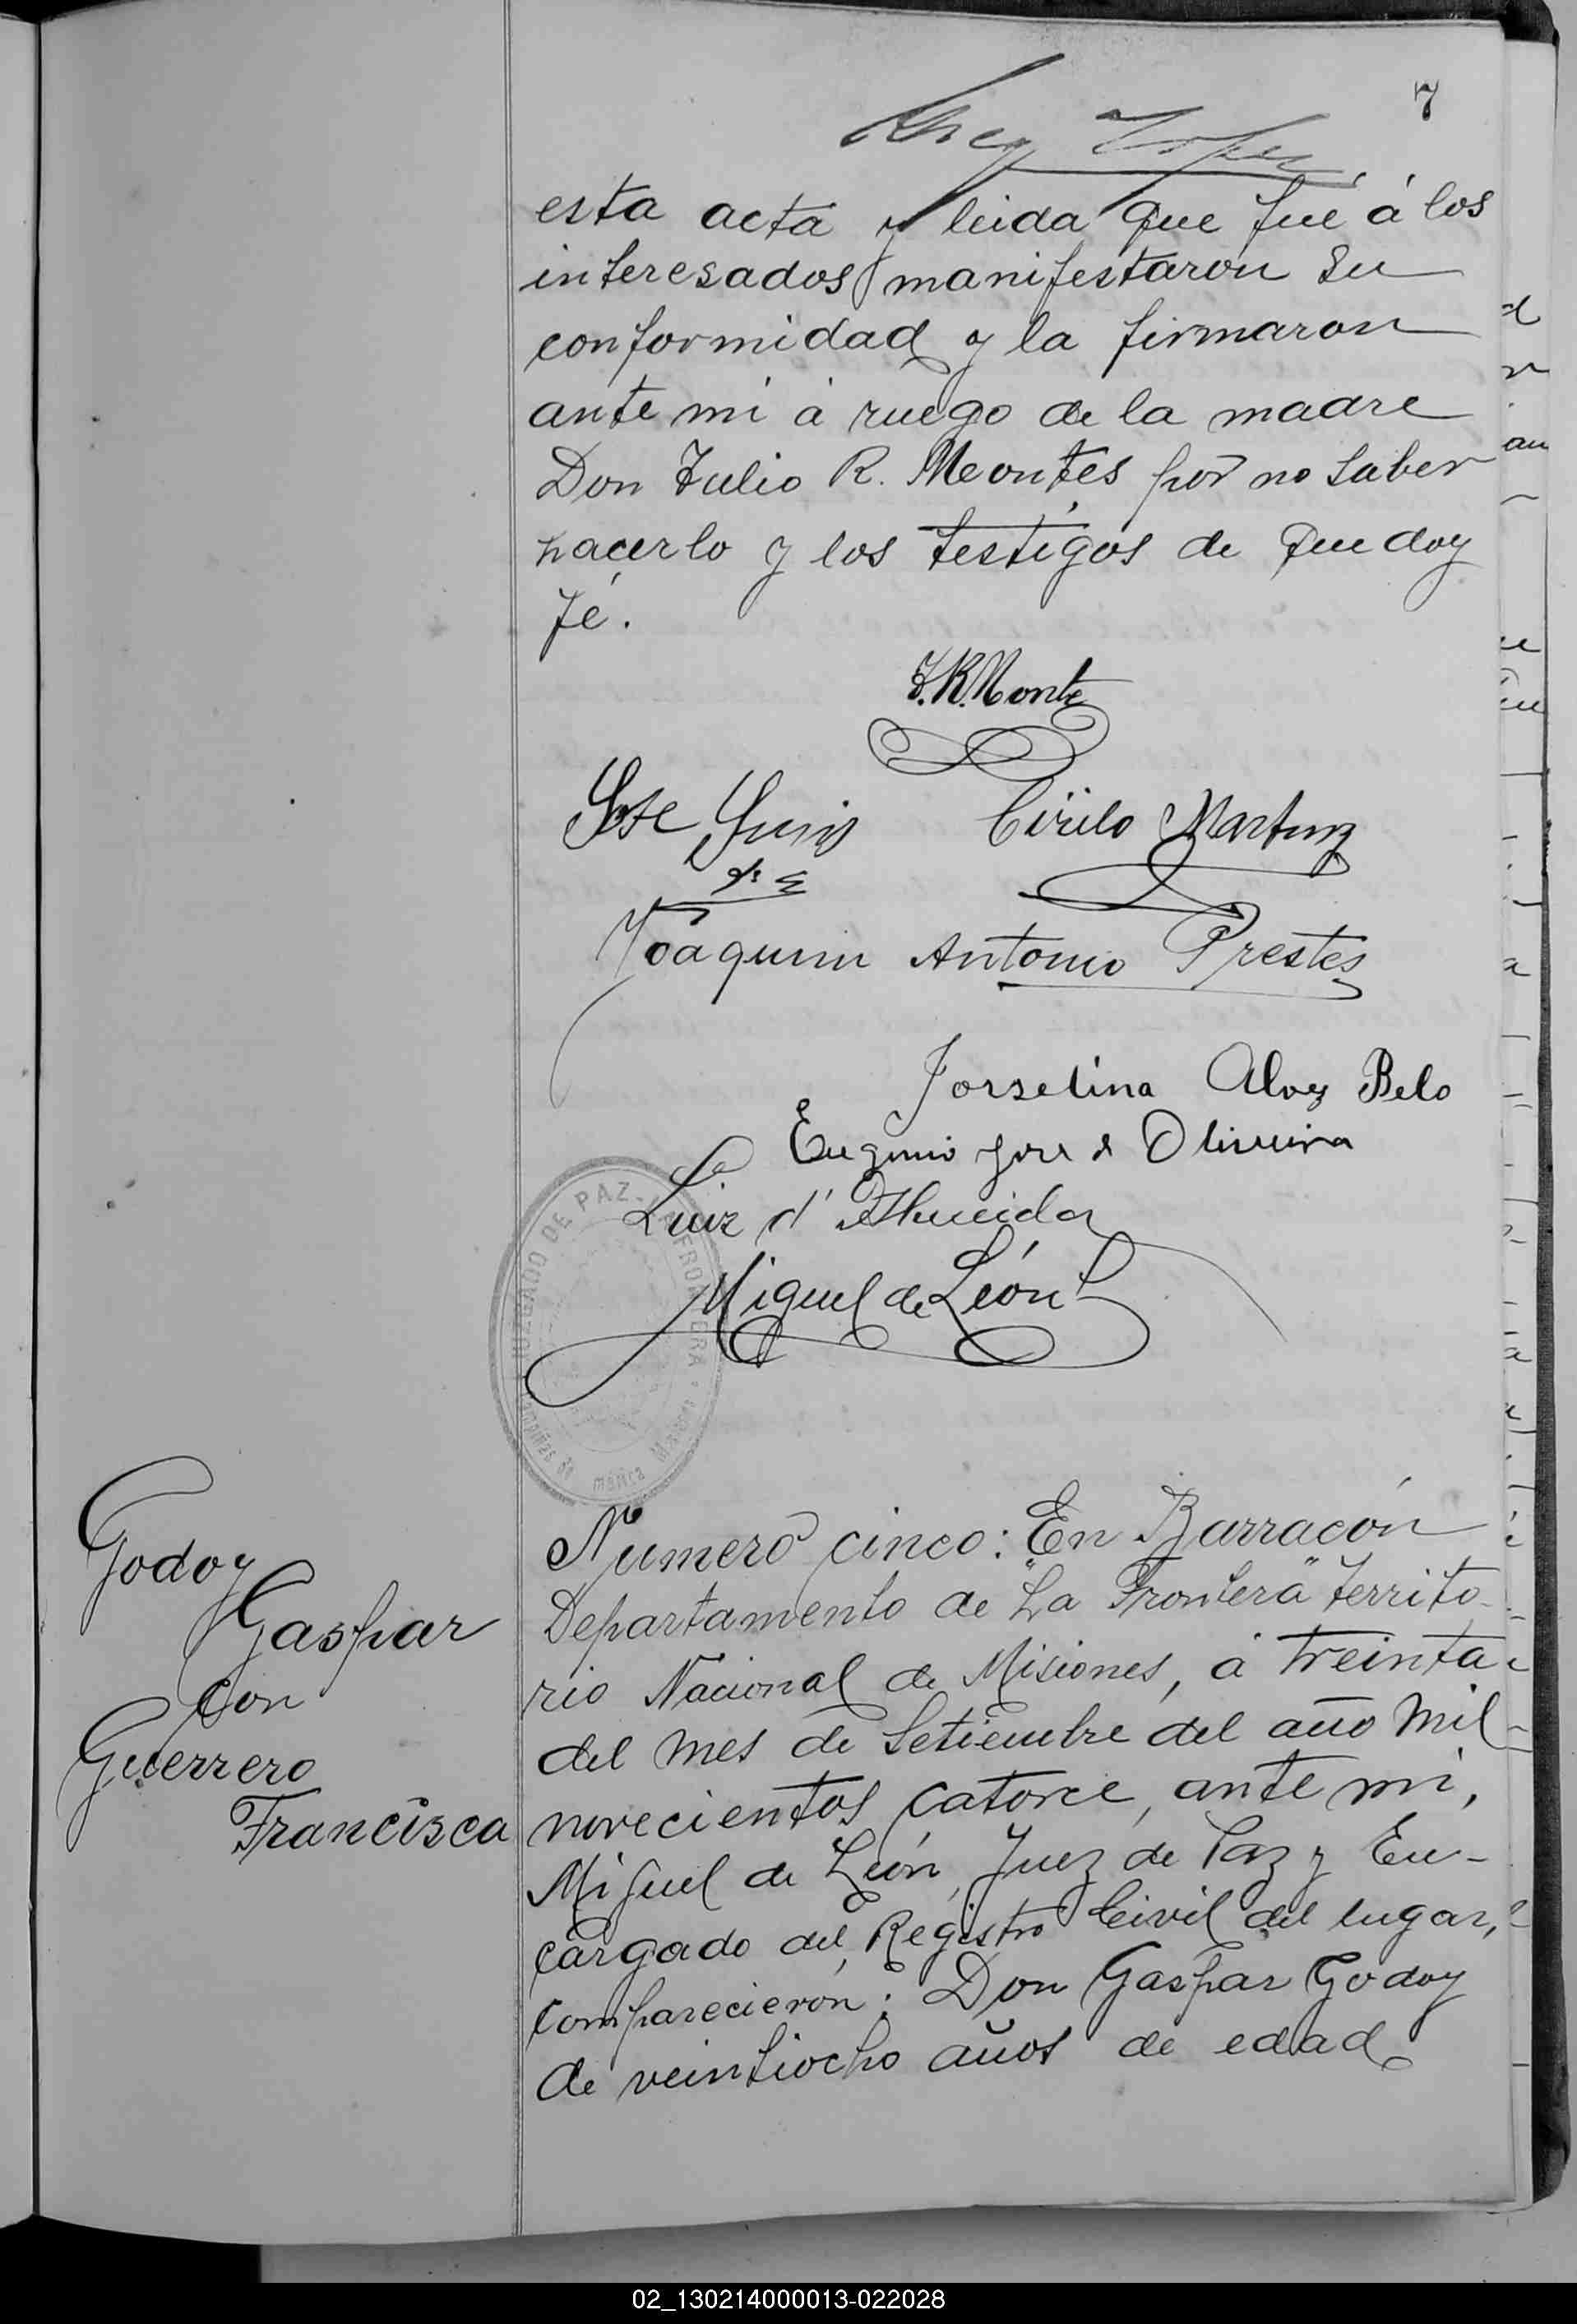 7
esta acta y leida que fué á los
interesados manifestaron su
conformidad y la firmaron
ante mi á ruego de la madre
Don Julio R. Montes por no saber
hacerlo y los testigos de que doy
fé.
J. R. Montes
Jose
Cirilo Martinez
Joaquim Antonio Prestes
Jorselina Alves Belo
Eugenio Jose d Oliveira
Luiz d' Almeida
Miguel de León
JUZGADO DE PAZ - LA FRONTERA
Misiones
Godoy
Gaspar
con
Guerrero
Francisca
Numero cinco: En Barracón
Departamento de "La Frontera" territo-
rio Nacional de Misiones, á treinta
del mes de Setiembre del año mil
novecientos catorce, ante mi,
Miguel de León, Juez de Paz y En-
cargado del Registro Civil del lugar,
comparecieron: Don Gaspar Godoy
de veintiocho años de edad
02_130214000013-022028